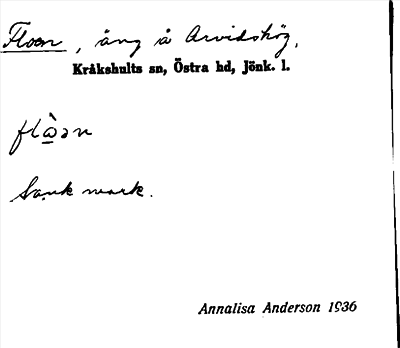 Floan, äng å Arvidshög,
Kråkshults sn, Östra hd, Jönk. l.
flå̀an
Sank mark.
Annalisa Anderson 1936